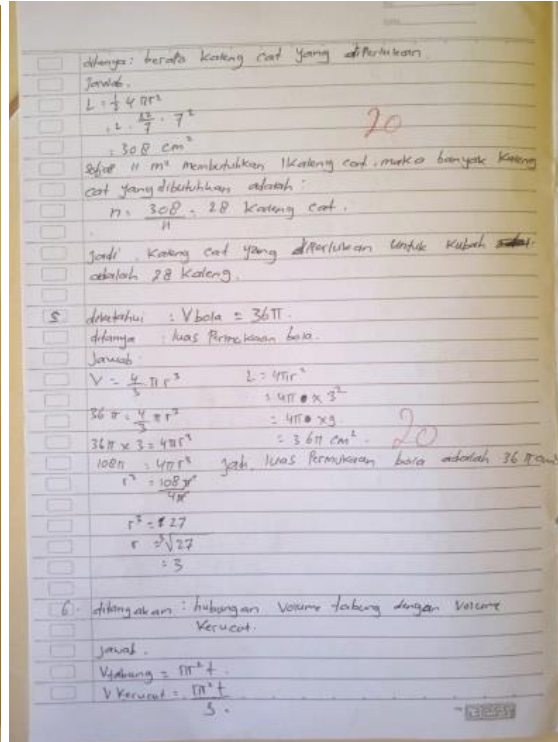 ditanya: berapa kaleng cat yang diperlukan.
Jawab.
L = 1/2 4 πr²
= 2 . 22/7 . 7²
= 308 cm²
20
Setiap 11 m² membutuhkan 1 kaleng cat. maka banyak kaleng
cat yang dibutuhkan adalah :
n = 308/11 = 28 kaleng cat.
Jadi kaleng cat yang diperlukan untuk kubah
adalah 28 kaleng.
5 diketahui : V bola = 36π.
ditanya : luas Permukaan bola.
Jawab
V = 4/3 πr³ L = 4πr²
= 4π × 3²
36 π = 4/3 πr³ = 4π × 9
36π × 3 = 4πr³ = 36π cm². 20
108π = 4πr³ Jadi, luas Permukaan bola adalah 36 π cm²
r³ = 108π/4π
r³ = 27
r = ³√27
= 3
6. ditanyakan : hubungan volume tabung dengan volume
kerucut.
jawab.
V tabung = πr² t.
V kerucut = πr² t/3.